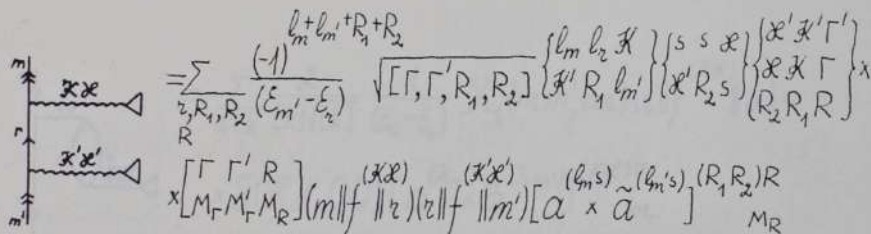 m
𝒦ϰ
r
𝒦'ϰ'
m'
= Σ_{r,R₁,R₂ R} (-1)^{l_m+l_{m'}+R₁+R₂} / (ε_{m'}-ε_r) √[Γ,Γ',R₁,R₂] {l_m l_r 𝒦 / 𝒦' R₁ l_{m'}} {s s ϰ / ϰ' R₂ s} {ϰ' 𝒦' Γ' / ϰ 𝒦 Γ / R₂ R₁ R} ×
× [Γ Γ' R / M_Γ M'_Γ M_R] (m||f^{(𝒦ϰ)}||r)(r||f^{(𝒦'ϰ')}||m')[a^{(l_m s)} × ã^{(l_{m'} s)}]^{(R₁R₂)R}_{M_R}